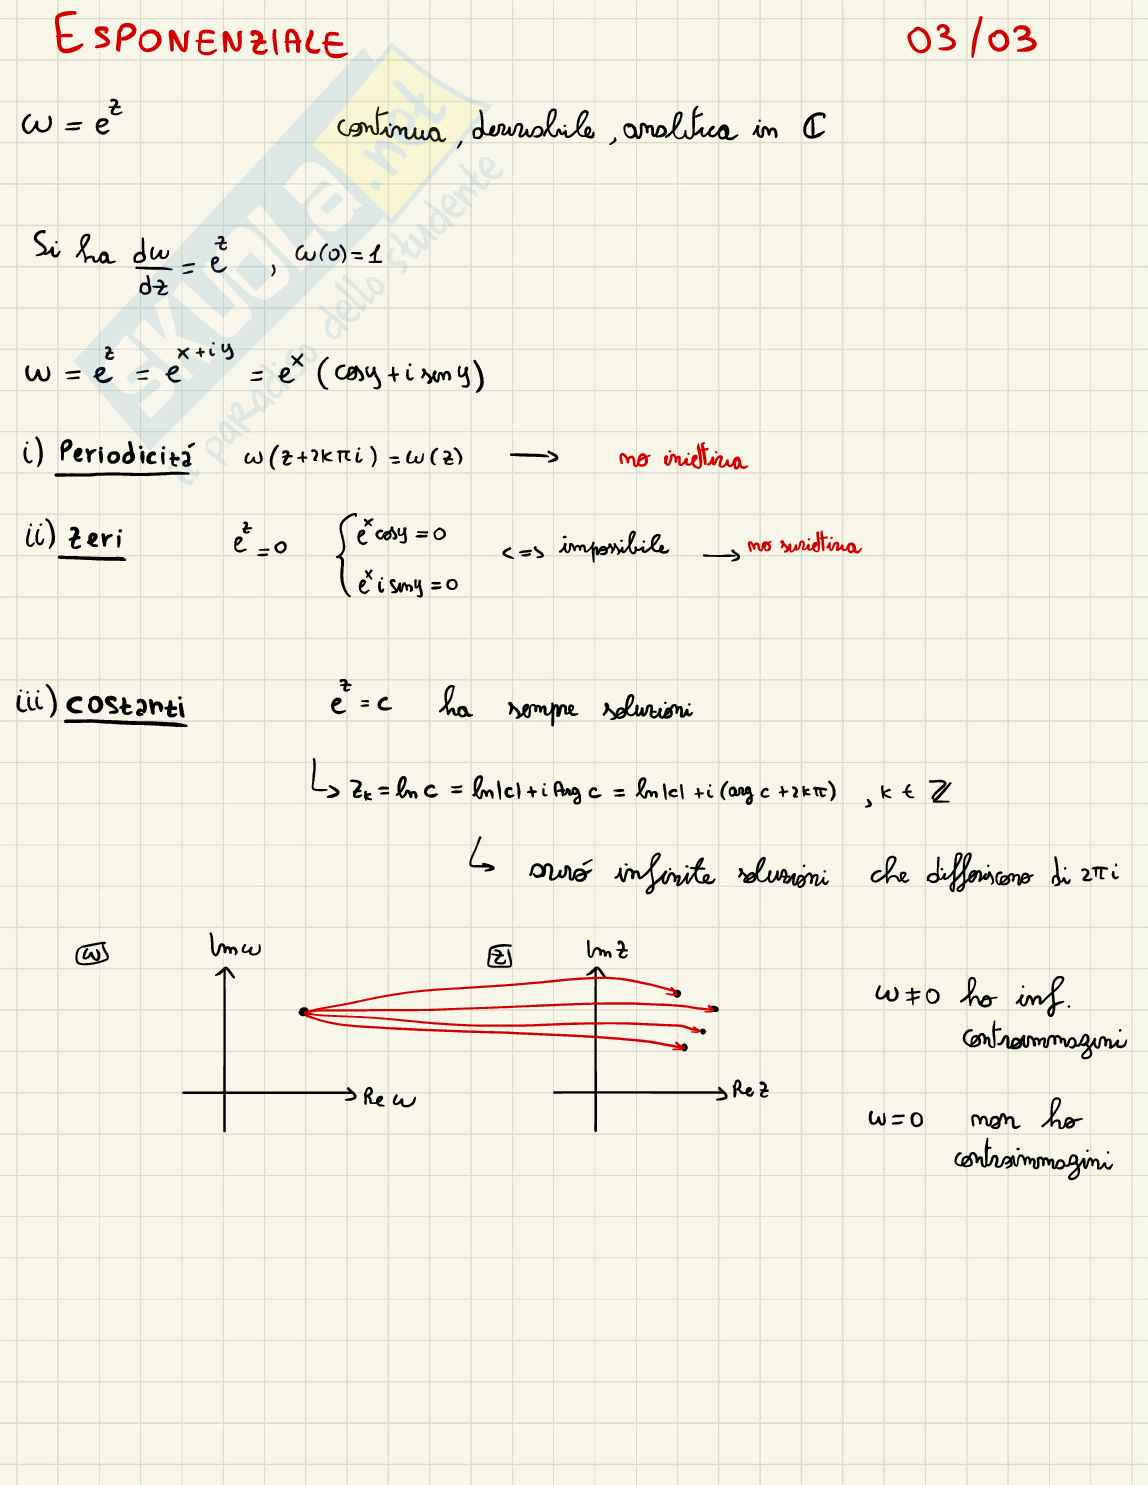 ESPONENZIALE 03/03
ω = e^z continua, derivabile, analitica in ℂ
Si ha dω/dz = e^z, ω(0)=1
ω = e^z = e^{x+iy} = e^x (cosy + i sen y)
i) Periodicitá ω(z+2kπi) = ω(z) → no iniettiva
ii) Zeri e^z = 0 { e^x cosy = 0 <=> impossibile → no suriettiva
e^x i seny = 0
iii) costanti e^z = c ha sempre soluzioni
↳ z_k = ln c = ln|c| + i Arg c = ln|c| + i (arg c + 2kπ), k ∈ ℤ
↳ avró infinite soluzioni che differiscono di 2πi
ω Im ω z Im z
ω ≠ 0 ho inf.
controimmagini
Re ω Re z
ω = 0 non ho
controimmagini
SKUOLA.net
il paradiso dello studente